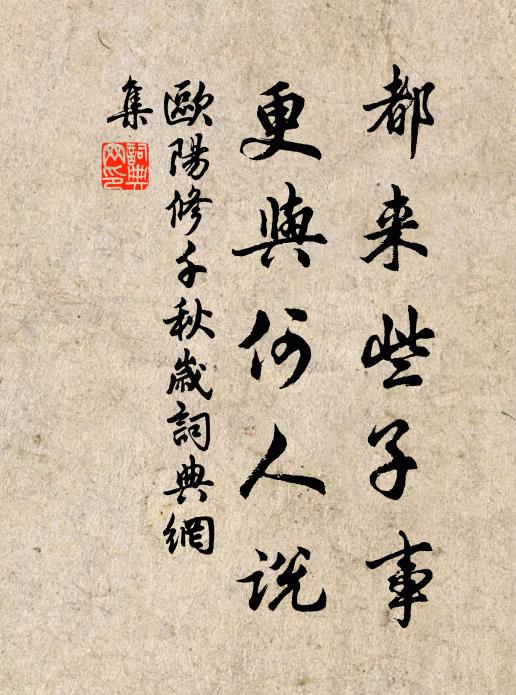 都来些子事
更與何人説
歐陽修千秋歲詞典網
集
詞典
网印